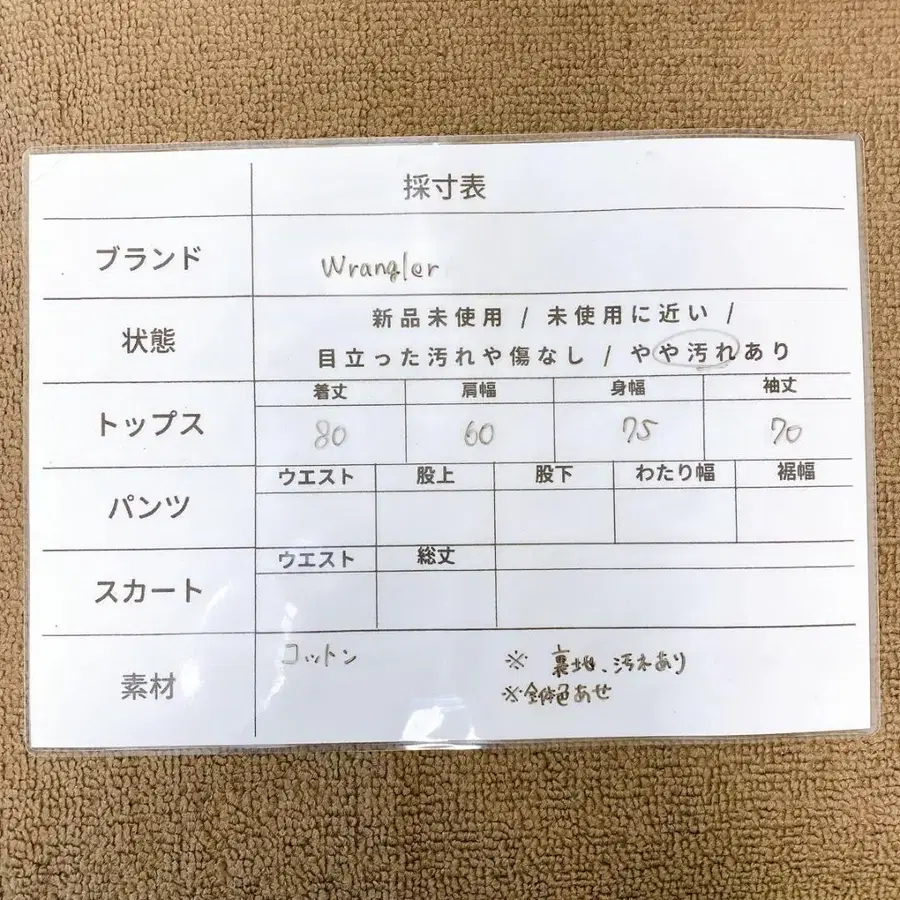 採寸表
ブランド Wrangler
状態 新品未使用 / 未使用に近い /
目立った汚れや傷なし / やや汚れあり
着丈 肩幅 身幅 袖丈
トップス 80 60 75 70
ウエスト 股上 股下 わたり幅 裾幅
パンツ
ウエスト 総丈
スカート
素材 コットン ※ 裏地、汚れあり
※全体色あせ